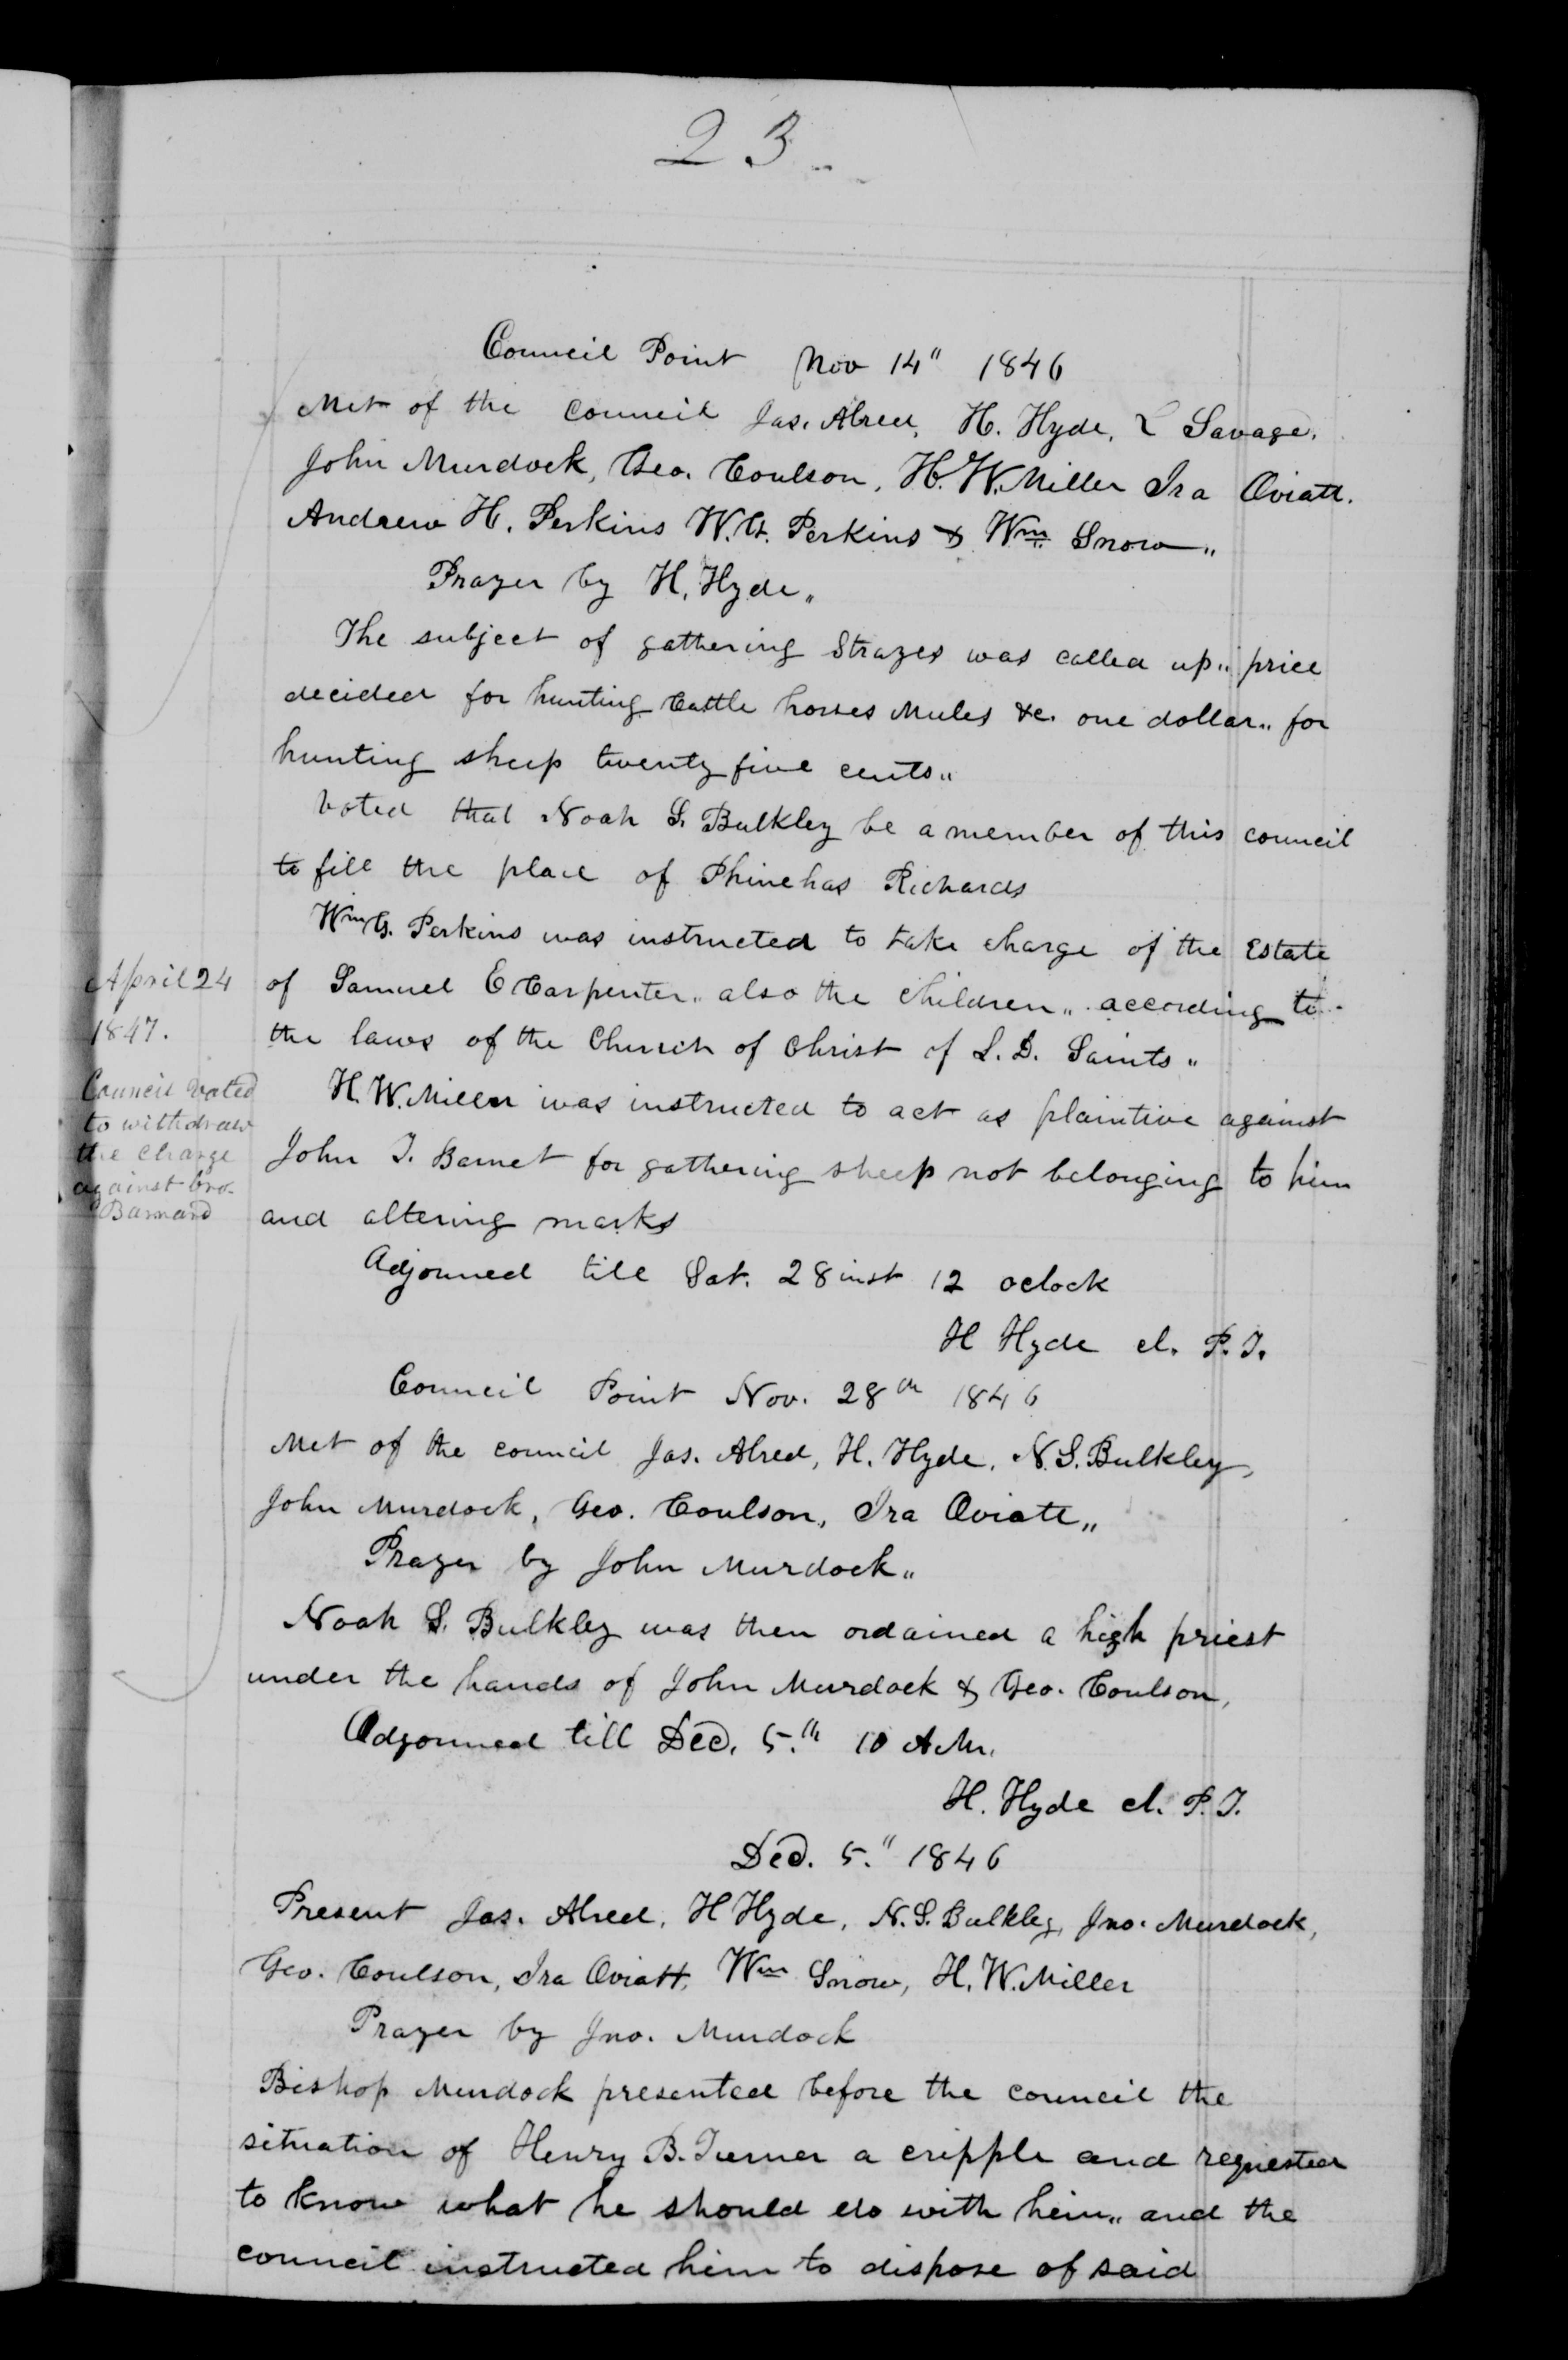 23
Council Point Nov 14" 1846
Met of the Council Jas. Alred, H. Hyde, L Savage,
John Murdock, Geo. Coulson, H. W. Miller Ira Oviatt.
Andrew H. Perkins W. G. Perkins & Wm Snow"
Prayer by H. Hyde"
The subject of gathering Strayes was called up" price
decided for hunting Cattle horses Mules &c. one dollar" for
hunting sheep twenty five cents"
Voted that Noah S. Bulkley be a member of this council
to fill the place of Phinehas Richards
Wm G. Perkins was instructed to take charge of the Estate
of Samuel E Carpenter" also the children" according to
the laws of the Church of Christ of L. D. Saints"
H. W. Miller was instructed to act as plaintive against
John T. Barnet for gathering sheep not belonging to him
and altering marks
April 24
1847.
Council voted
to withdraw
the charge
against bro.
Barnard
Adjourned till Sat. 28 inst 12 oclock
H Hyde cl. P. T.
Council Point Nov. 28th 1846
Met of the council Jas. Alred, H. Hyde, N. S. Bulkley,
John Murdock, Geo. Coulson, Ira Oviatt"
Prayer by John Murdock"
Noah S. Bulkley was then ordained a high priest
under the hands of John Murdock & Geo. Coulson,
Adjourned till Dec. 5th 10 A.M.
H. Hyde cl. P. T.
Dec. 5." 1846
Present Jas. Alred, H Hyde, N. S. Bulkley, Jno. Murdock,
Geo. Coulson, Ira Oviatt, Wm Snow, H. W. Miller
Prayer by Jno. Murdock
Bishop Murdock presented before the council the
situation of Henry B. Turner a cripple and requested
to know what he should do with him" and the
council instructed him to dispose of said